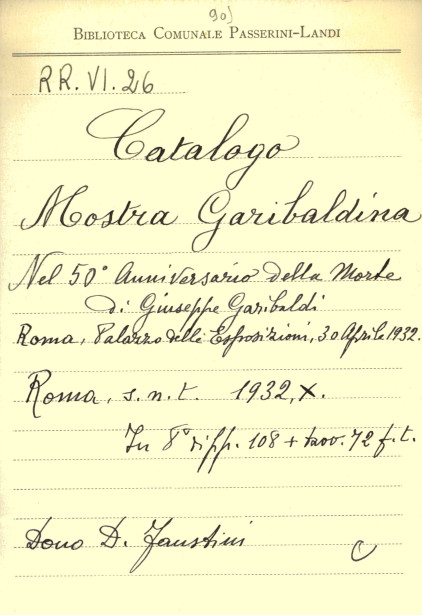 90)
BIBLIOTECA COMUNALE PASSERINI-LANDI
RR. VI. 26
Catalogo
Mostra Garibaldina
Nel 50° Anniversario della Morte
di Giuseppe Garibaldi
Roma, Palazzo delle Esposizioni, 30 Aprile 1932.
Roma, s.n.t. 1932, X.
In 8° di pp. 108 + tavv. 72 f.t.
Dono D. Faustini